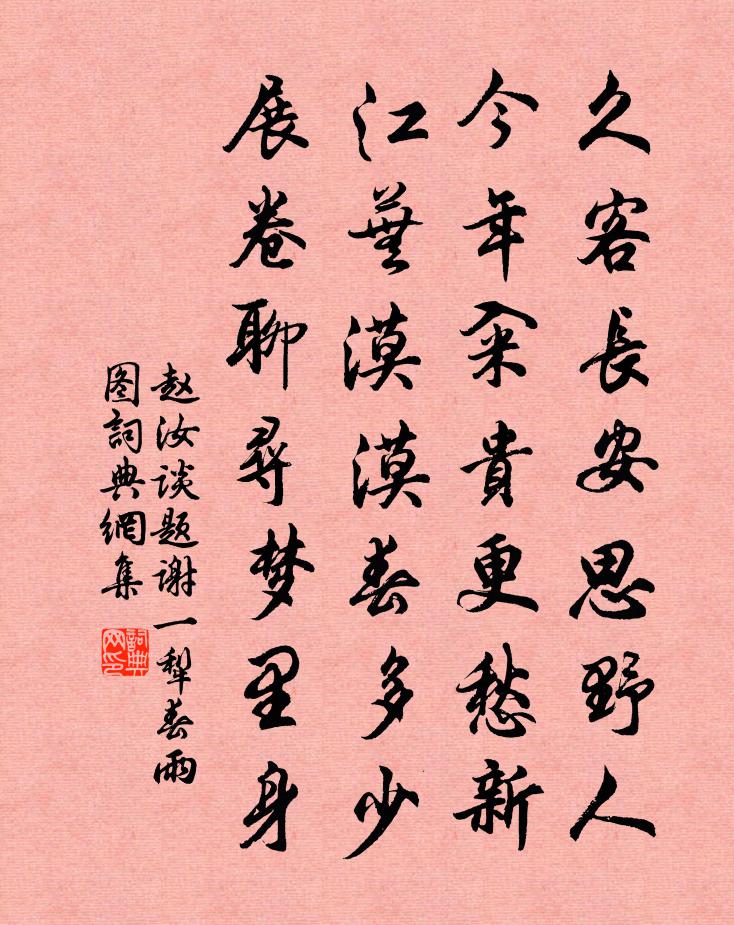 久客長安思野人
今年籴貴更愁新
江蕪漠漠春多少
展卷聊尋梦里身
赵汝谈题谢一犁春雨
图詞典網集
詞典
网印